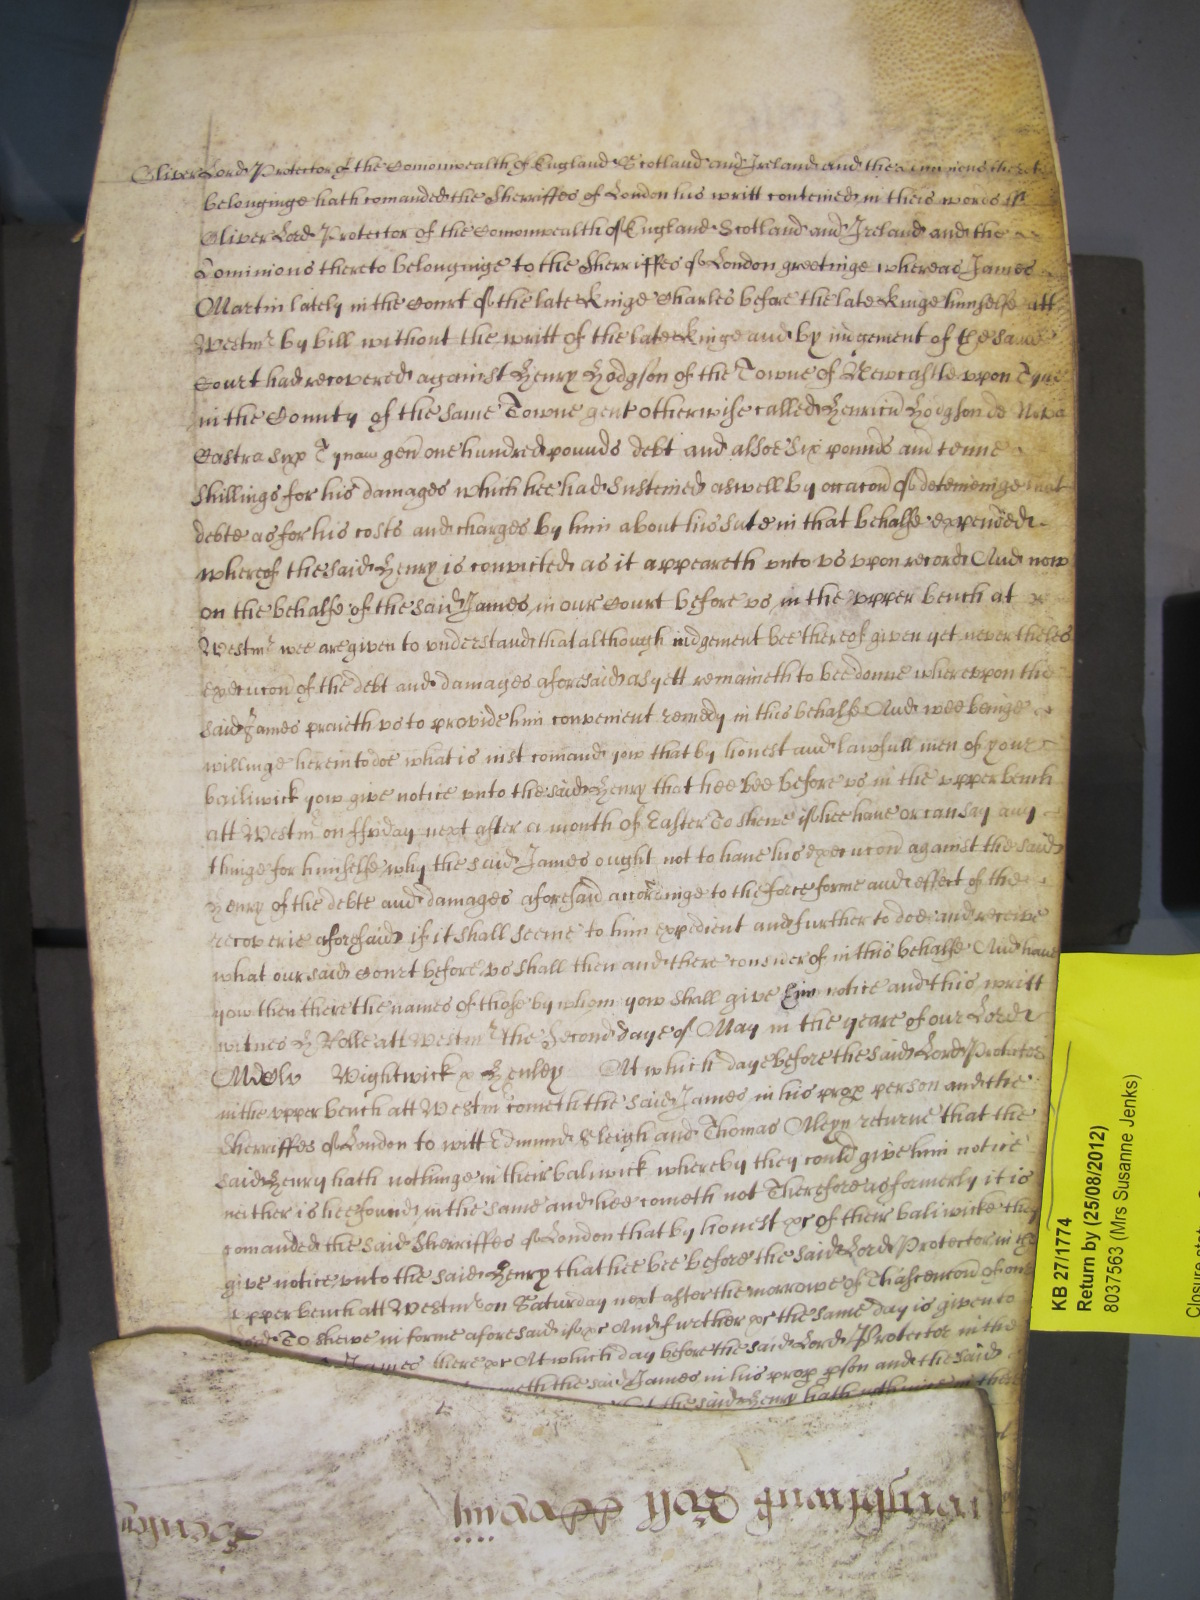 Oliver Lord Protector of the Comonwealth of England Scotland and Ireland and the
belonginge hath comanded the Sherriffes of London his writt conteined in theis words
Oliver Lord Protector of the Comonwealth of England Scotland and Ireland and the
Dominions thereto belonginge to the Sherriffes of London greetinge whereas James
Martin lately in the Court of the late Kinge Charles before the late Kinge himselfe att
Westmr by bill without the writt of the late Kinge and by iudgement of the same
Court had recovered against Henry Hodgson of the Towne of Newcastle upon Tyne
in the County of the same Towne gent otherwise called Henricu Hodgson de Nova
Castra sup Tynam gen one hundred pounds debt and alsoe six pounds and tenne
shillings for his damages which hee had susteined aswell by occacon of deteineinge that
debte as for his costs and charges by him about his sute in that behalfe expended
whereof the said Henry is convicted as it appeareth unto us upon record And now
on the behalfe of the said James in our Court before us in the upper bench at
Westmr wee are given to understand that although iudgement bee thereof given yet neverthelес
execucon of the debt and damages aforesaid as yett remaineth to bee donne whereupon the
said James praieth us to provide him convenient remedy in this behalfe And wee beinge
willinge herein to doe what is iust comand yow that by honest and lawfull men of your
bailiwick yow give notice unto the said Henry that hee bee before us in the upper bench
att Westmr on ffryday next after a month of Easter To shewe if hee have or can say any
thinge for himselfe why the said James ought not to have his execucon against the said
Henry of the debte and damages aforesaid accordinge to the force forme and effect of the
recoverie aforesaid if it shall seeme to him expedient and further to doe and receive
what our said Court before us shall then and there consider of in this behalfe And have
yow then there the names of those by whom yow shall give him notice and this writt
witnes H Rolle att Westmr the second daye of May in the yeare of our Lord
MDClv Wightwick p Henley At which daye before the said Lord Protector
in the upper bench att Westmr cometh the said James in his prop person and the
Sherriffes of London to witt Edmund Sleigh and Thomas Aleyn returne that the
said Henry hath nothinge in their baliwick whereby they could give him notice
neither is hee found in the same and hee cometh not Therefore as formerly it is
comanded the said Sherriffes of London that by honest &c of their baliwicke they
give notice unto the said Henry that hee bee before the said Lord Protector in the
upper bench att Westmr on Saturday next after the morrowe of Thascencon of our
Lord To shewe in forme aforesaid if &c And further &c the same day is given to
James there &c At which day before the said Lord Protector in the
cometh the said James in his prop pson and the said
that the said Henry hath nothinge in their
KB 27/1774
Return by (25/08/2012)
8037563 (Mrs Susanne Jenks)
Closure